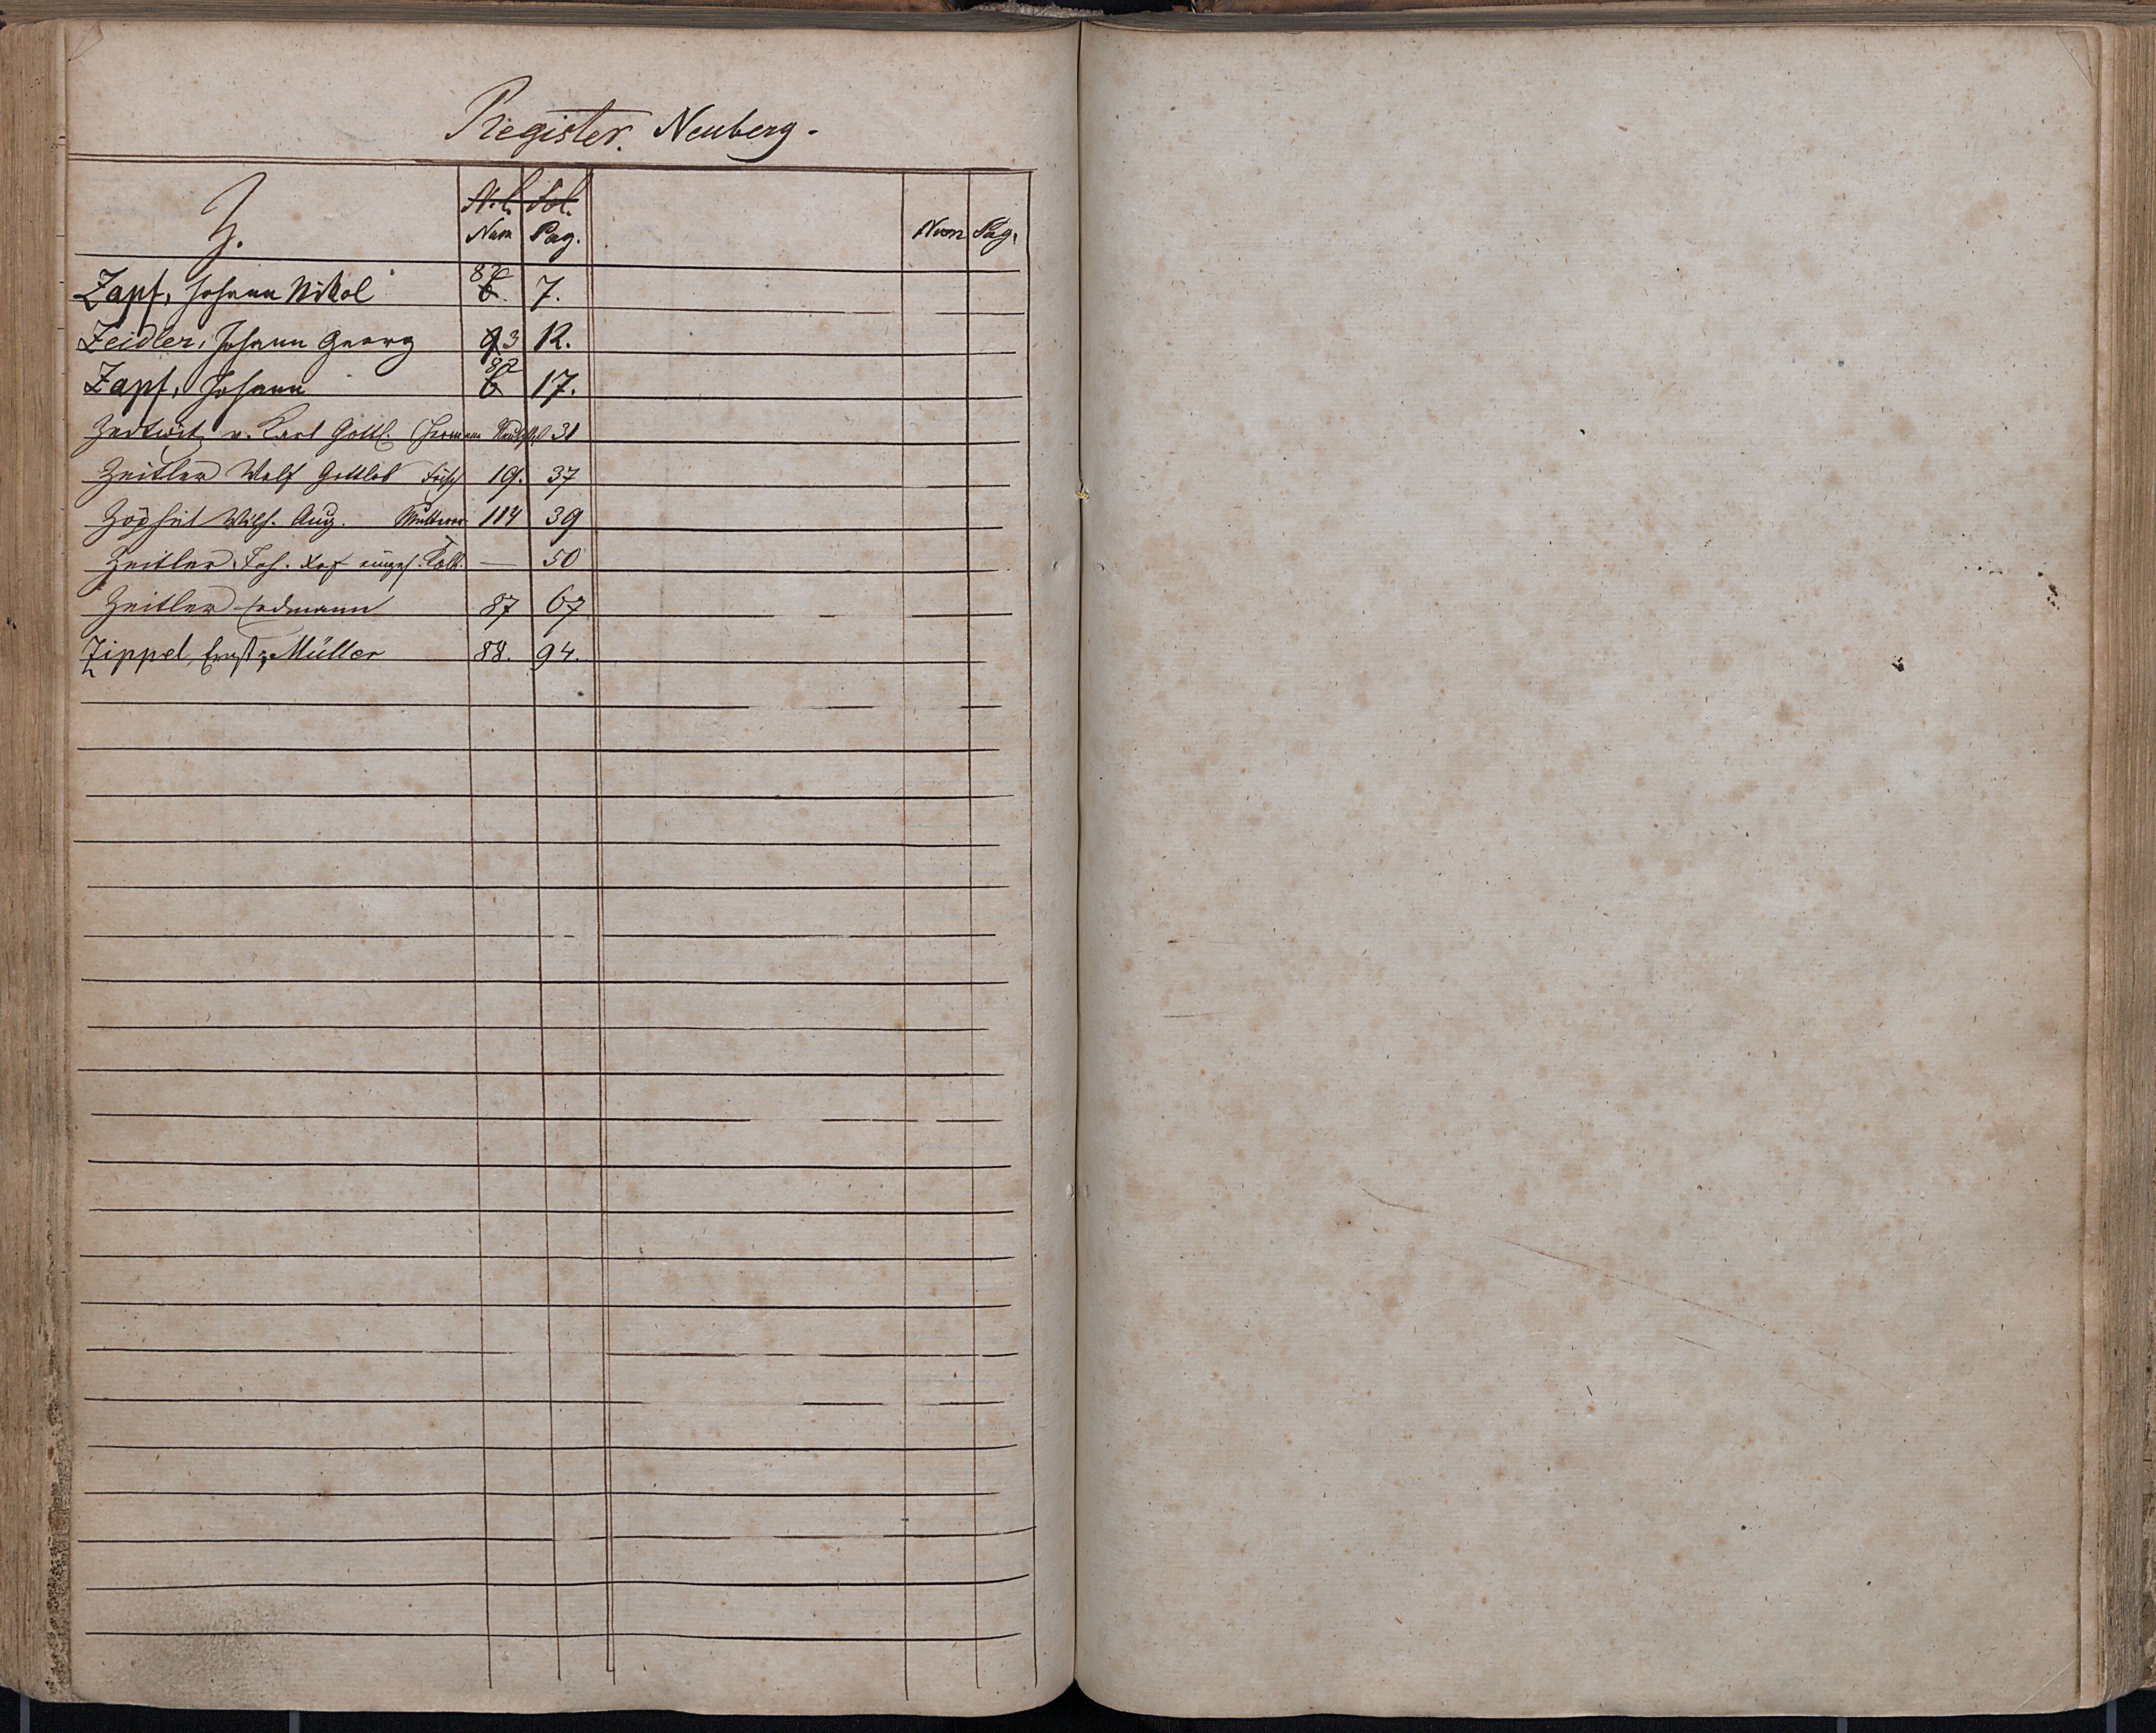 Register. Neuberg.
Z. Fol.
Num Pag. Num Pag.
Zapf, Johann Nikol 82 6 7.
Zeidler, Johann Georg 93 12.
Zapf, Johann 82 6 17.
Zedtwitz v. Karl Gottl. (Hermann 31
Zeitler Wolf Gottlob 19. 37
Zöphel Wilh. Aug. 114 39
Zeitler Joh. — 50
Zeitler Erdmann 87 67
Zippel, Ernst, Müller 88. 94.